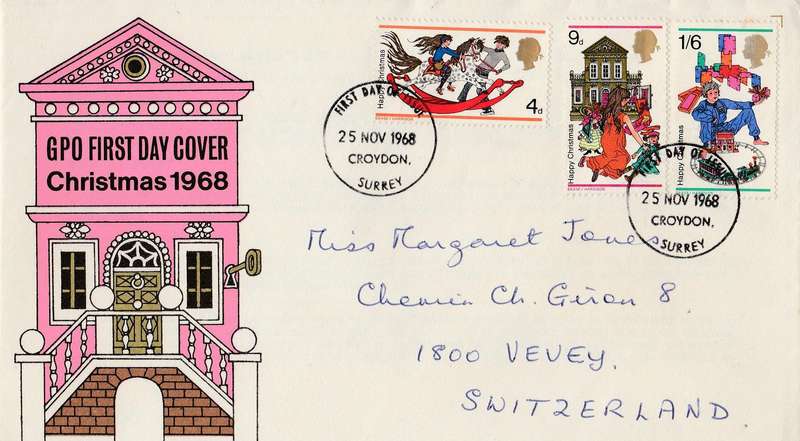 GPO FIRST DAY COVER
Christmas 1968
Happy Christmas
4d
9d
Happy Christmas
1/6
Happy Christmas
FIRST DAY OF ISSUE
25 NOV 1968
CROYDON,
SURREY
FIRST DAY OF ISSUE
25 NOV 1968
CROYDON,
SURREY
Miss Margaret Jones
Chemin Ch. Giron 8.
1800 VEVEY.
SWITZERLAND